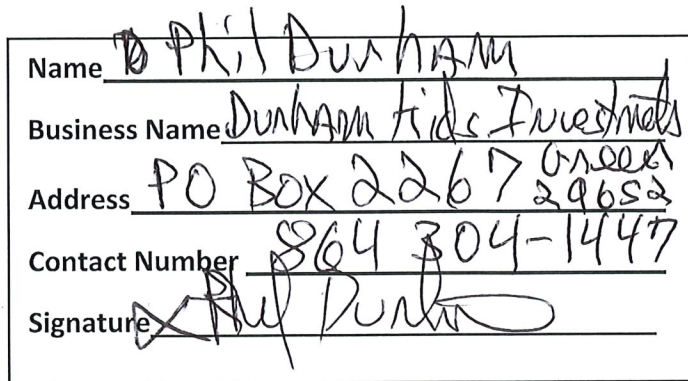 Name Phil Durham
Business Name Durham Kids Investmets
Address PO Box 2267 Greer 29652
Contact Number 864 304-1447
Signature Phil Durham